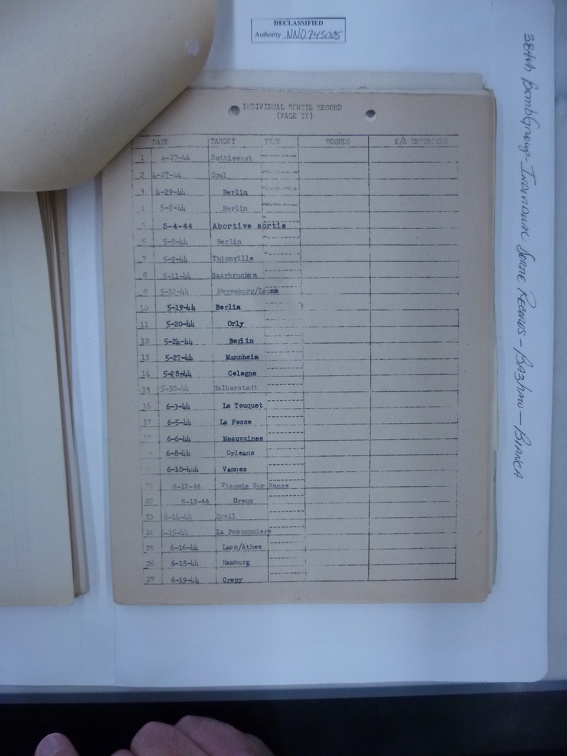 DECLASSIFIED
Authority NND 745005
384th Bomb Group - Individual Sortie Records -
INDIVIDUAL SORTIE RECORD
(PAGE II)
DATE TARGET TIME WOUNDS
1 4-27-44
2 4-27-44 Toul
3 4-29-44 Berlin
4 5-7-44 Berlin
5 5-4-44 Abortive sortie
6 5-8-44 Berlin
7 5-9-44 Thionville
8 5-11-44 Saarbrucken
9 5-12-44 Merseburg/Leuna
10 5-19-44 Berlin
11 5-20-44 Orly
12 5-24-44 Berlin
13 5-27-44 Mannheim
14 5-28-44 Cologne
15 5-30-44 Halberstadt
16 6-3-44 Le Touquet
17 6-5-44 La Fosse
6-6-44 Meauvaines
6-8-44 Orleans
6-10-44 Vannes
6-12-44
22 6-13-44 Dreux
6-14-44 Creil
6-15-44 La
25 6-16-44 Laon/Athes
26 6-18-44 Hamburg
27 6-19-44 Crepy